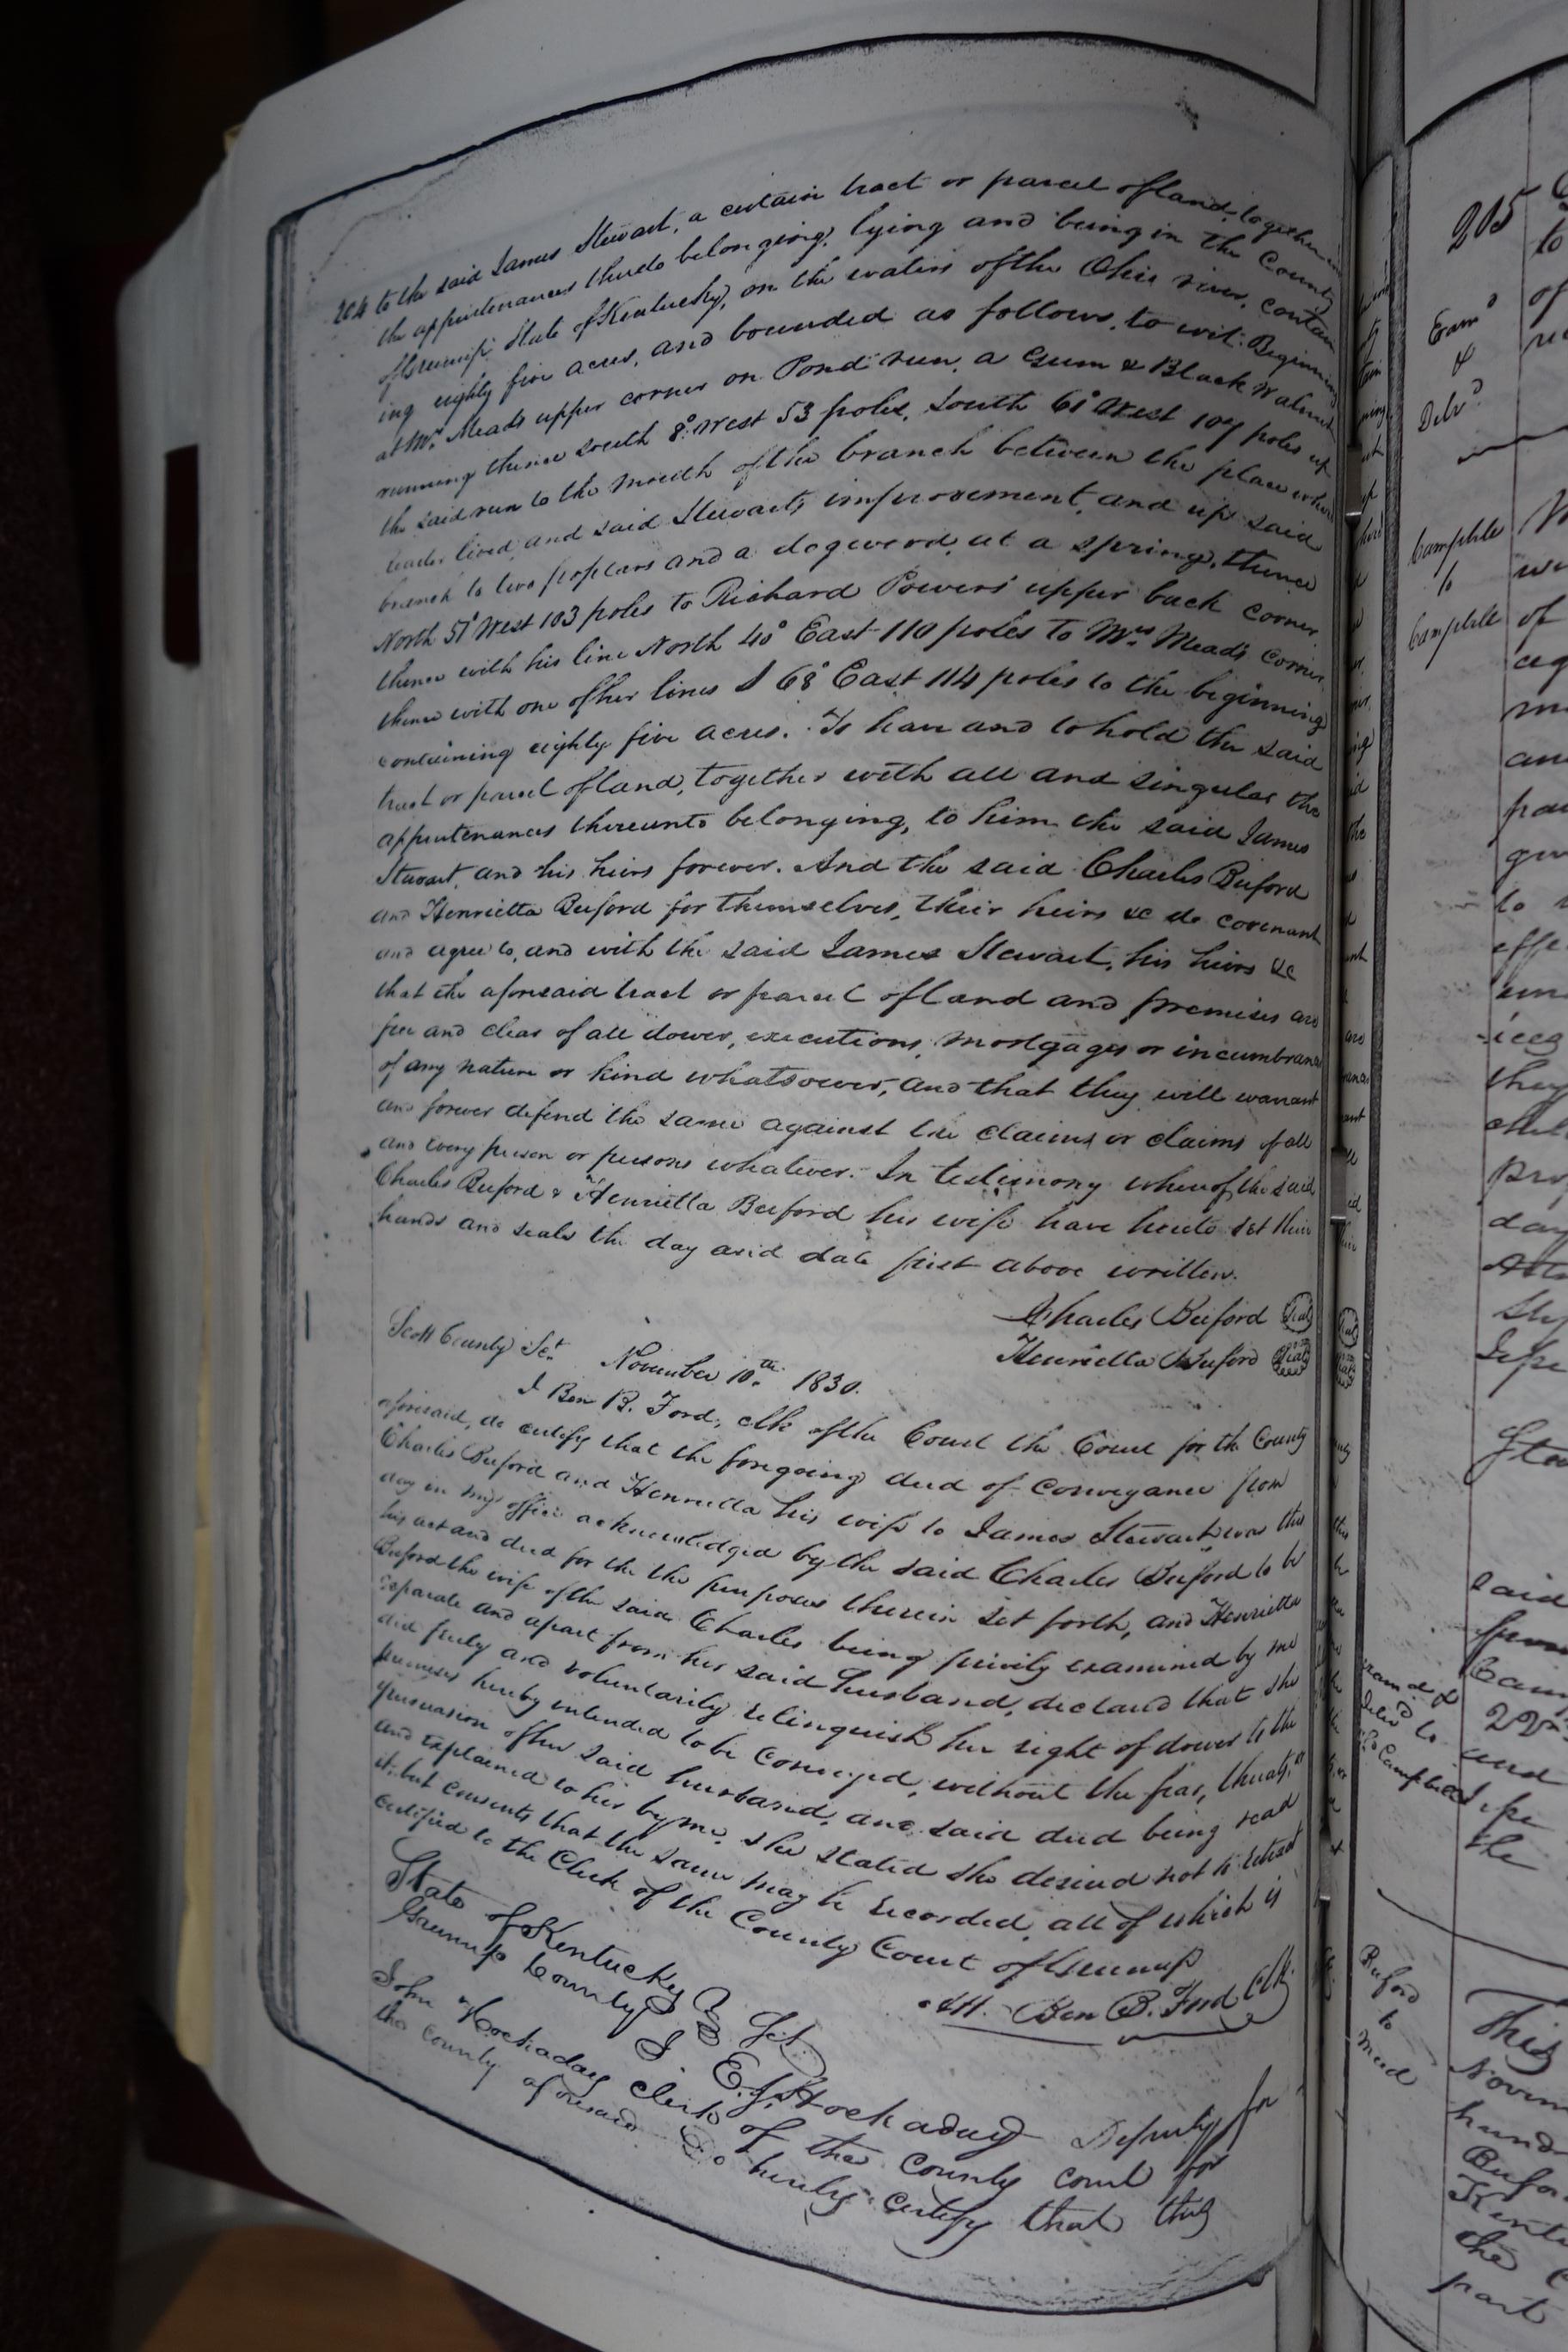 204 to the said James Stewart, a certain tract or parcel of land, together
the appurtenances thereto belonging, lying and being in the County
of Greenup State of Kentucky, on the waters of the Ohio river, contain
ing eighty five acres, and bounded as follows, to wit: Beginning
at Mrs. Meads upper corner on Pond run, a Gum & Black Walnut
running thence south 8° West 53 poles, South 61° West 104 poles up
the said run to the mouth of the branch between the place where
lived, and said Stewarts improvement, and up said
branch to two poplars and a dogwood, at a spring, thence
North 51° West 103 poles to Richard Powers' upper back corner
thence with his line North 40° East 110 poles to Mrs. Meads corner
thence with one of her lines S 68° East 114 poles to the beginning
containing eighty five acres. To have and to hold the said
tract or parcel of land, together with all and singular the
appurtenances thereunto belonging, to him the said James
Stewart, and his heirs forever. And the said Charles Buford
and Henrietta Buford for themselves, their heirs &c do covenant
and agree to, and with the said James Stewart, his heirs &c
that the aforesaid tract or parcel of land and premises are
free and clear of all dower, executions, mortgages or incumbrances
of any nature or kind whatsoever, and that they will warrant
and forever defend the same against the claims or claims of all
and every person or persons whatever. In testimony whereof the said
Charles Buford & Henrietta Buford his wife have hereto set their
hands and seals the day and date first above written.
Charles Buford Seal
Henrietta Buford Seal
Scott County Sct. November 10th. 1830.
I Ben B. Ford, clk of the Court the Court for the County
aforesaid, do certify that the foregoing deed of conveyance from
Charles Buford and Henrietta his wife to James Stewart was this
day in my office acknowledged by the said Charles Buford to be
his act and deed for the the purposes therein set forth, and Henrietta
Buford the wife of the said Charles being privily examined by me
separate and apart from her said husband, declared that she
did freely and voluntarily relinquish her right of dower to the
premises hereby intended to be conveyed, without the fear, threats, or
persuasion of her said husband, and said deed being read
and explained to her by me, she stated she desired not to retract
it, but consents that the same may be recorded, all of which is
certified to the Clerk of the County Court of Greenup
Att. Ben B. Ford Clk
State of Kentucky
Greenup County Sct
I E. J. Hockaday Deputy for
John Hockaday Clerk of the County court for
the county aforesaid Do hereby certify that this
205
Exam'd
&
Delv'd
Camplete
to
Camplete
to
of
of
they
day
said
22
and
the
Buford
to
Mead
This
Novem
hund
Bufor
Kent
the
part